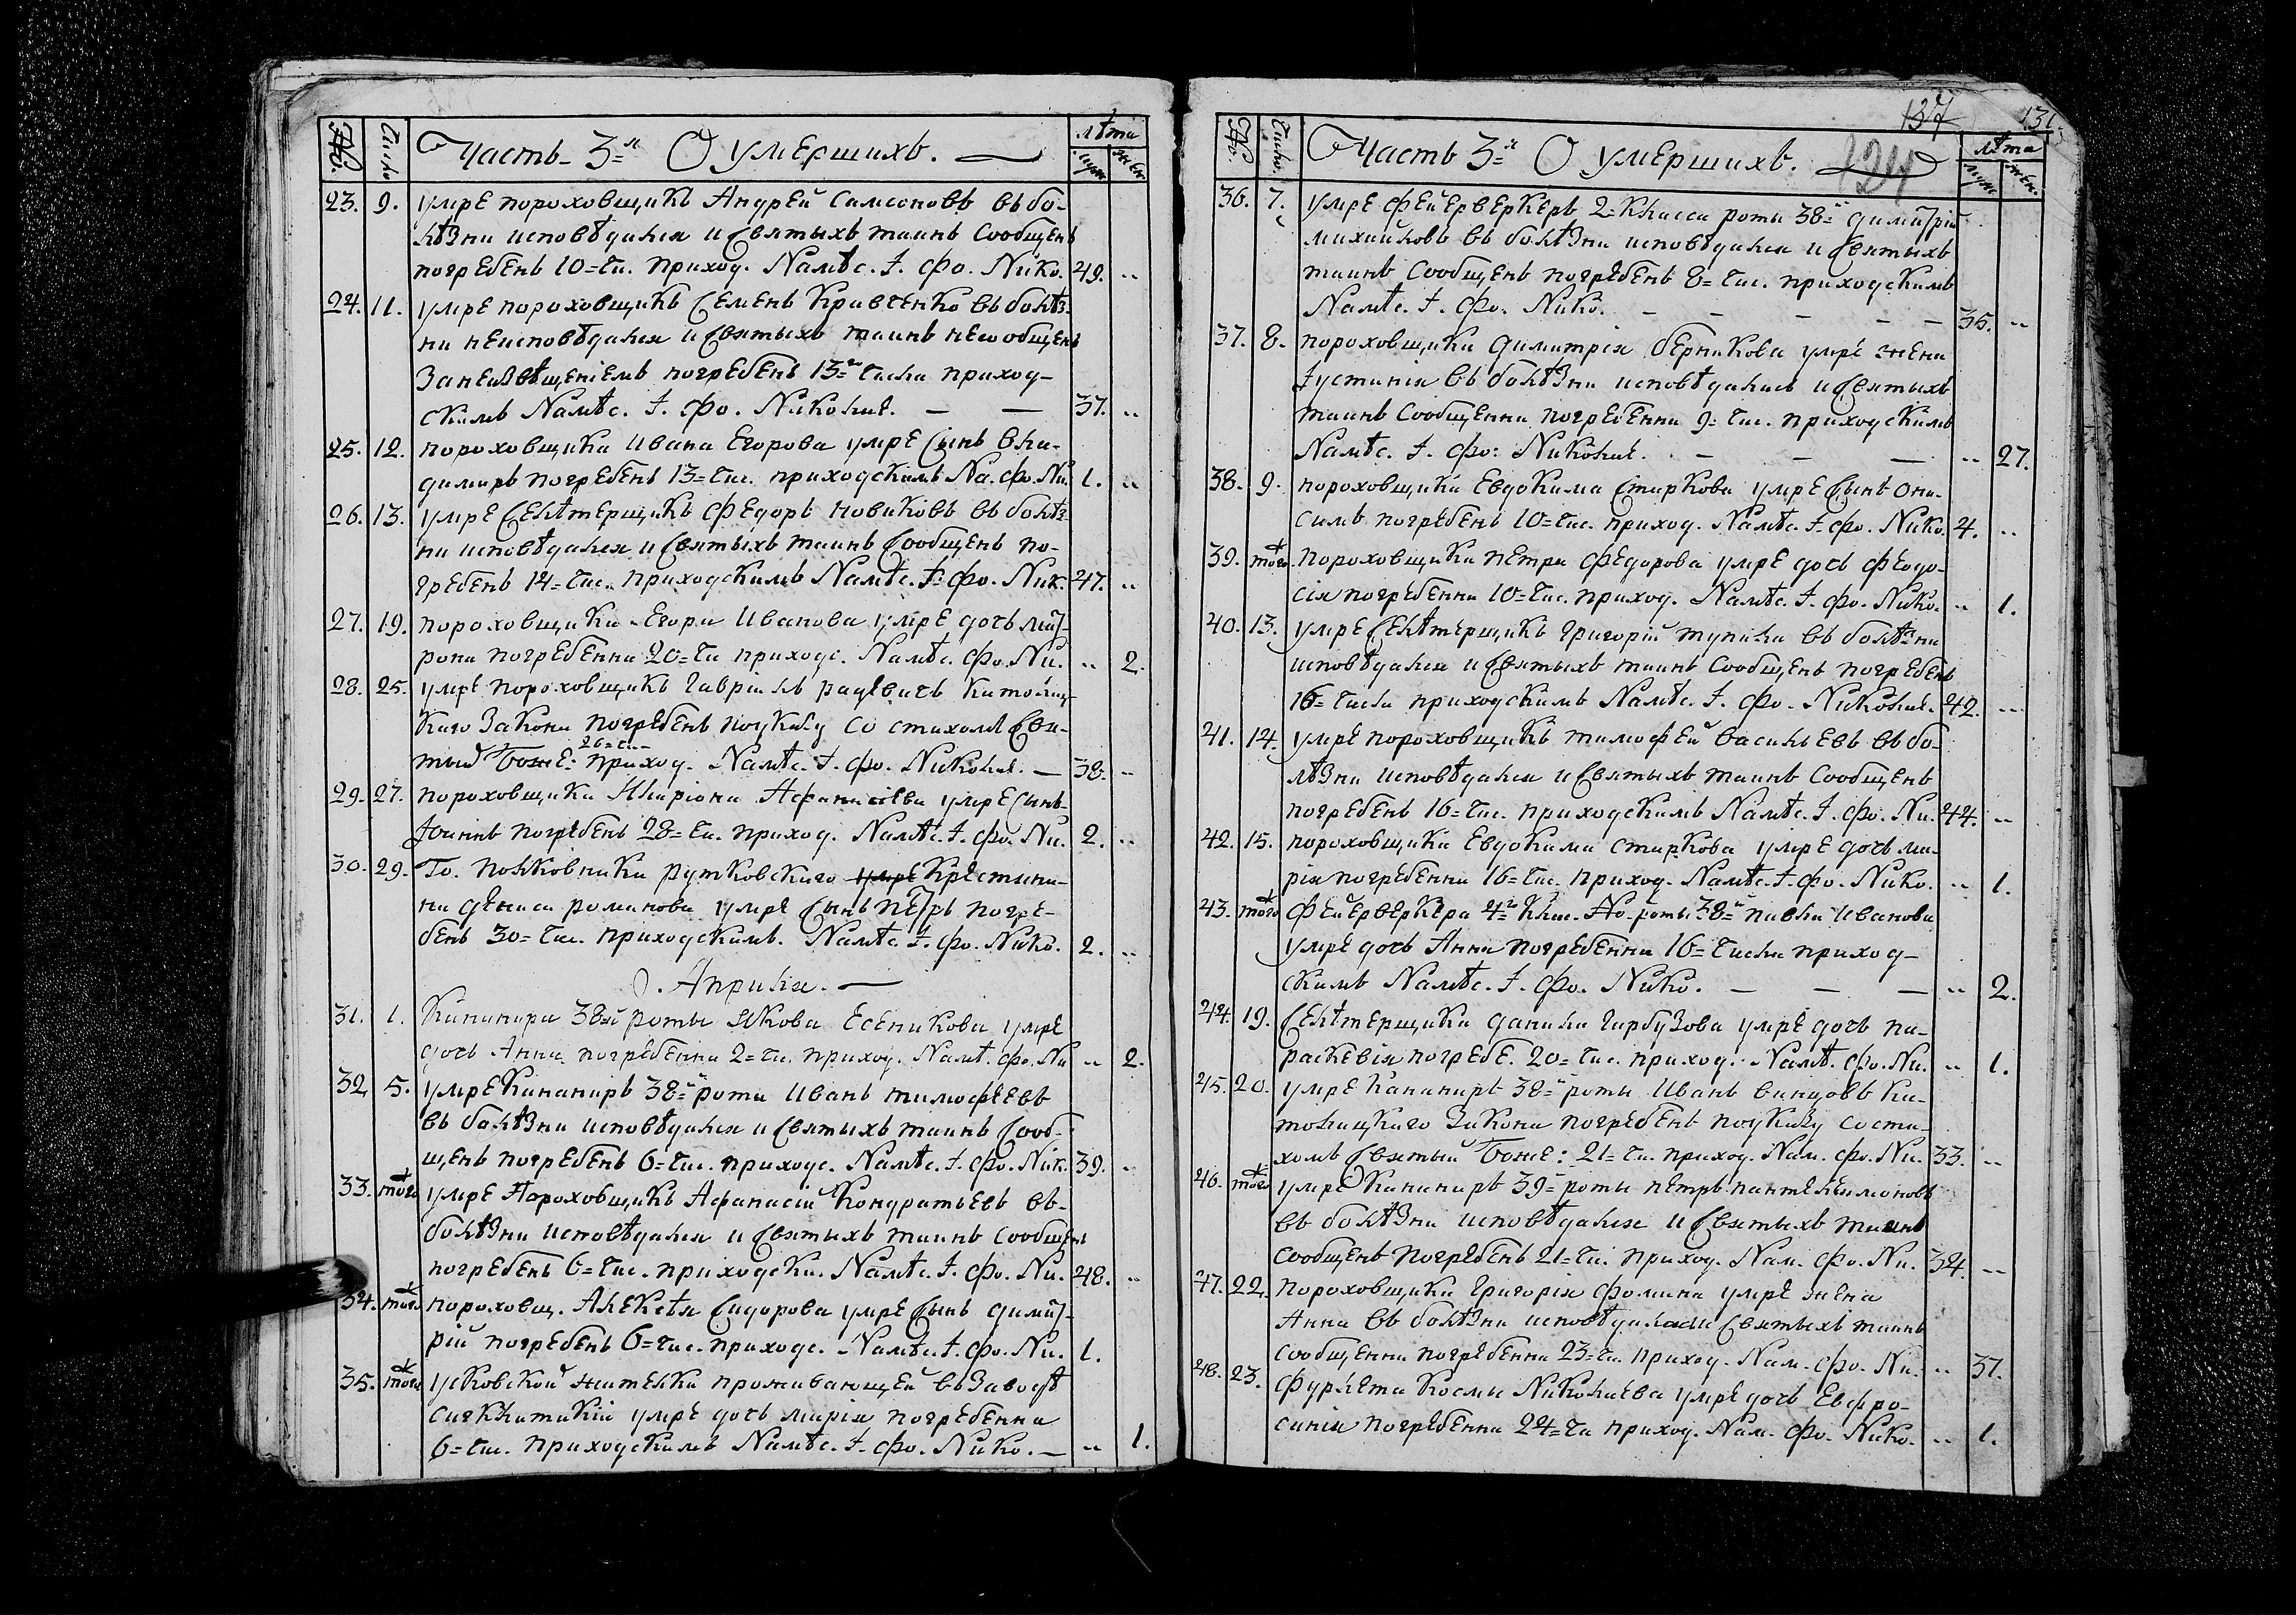 № Число Часть 3=я О умершихъ. лѣта муж. жен.
23. 9. умре пороховщикъ Андрей Самсоновъ въ бо-
лѣзни исповѣдался и святыхъ таинъ сообщенъ
погребенъ 10= чи. приход. Намѣс. І. Фо. Нико. 49. ..
24. 11. умре пороховщикъ Семенъ Кравченко въ болѣз-
ни неисповѣдался и святыхъ таинъ несообщенъ
за неизвѣщеніемъ погребенъ 13=го числа приход-
скимъ Намѣс. І. Фо. Николае. — — 37. ..
25. 12. пороховщика Ивана Егорова умре сынъ Вла-
димиръ погребенъ 13= чис. приходскимъ На. Фо. Ни. 1. ..
26. 13. умре Селѣтерщикъ Федоръ Новиковъ въ болѣз-
ни исповѣдался и святыхъ таинъ сообщенъ по-
гребенъ 14= чис. приходскимъ Намѣс. І. Фо. Ник. 47. ..
27. 19. пороховщика Егора Иванова умре дочь Мат-
рона погребенна 20= чи приходс. Намѣс. Фо. Ни. .. 2.
28. 25. умре пороховщикъ Гавріилъ Радевичь католиц-
каго закона погребенъ поуказу со стихомъ Свя-
тый Боже: 26= чи. приход. Намѣс. І. Фо. Николае. — 38. ..
29. 27. пороховщика Иларіона Афанасіева умре сынъ
Іоаннъ погребенъ 28= чи. приход. Намѣс. І. Фо. Ни. 2. ..
30. 29. Го. Полковника Рутковскаго умре крестяни-
на Дениса Романова умре сынъ Петръ погре-
бенъ 30= чис. приходскимъ. Намѣс. І. Фо. Нико. 2. ..
Априля. —
31. 1. Кананира 38=й роты Якова Есеникова умре
дочь Анна погребенна 2= чи. приход. Намѣ. Фо. Ни .. 2.
32. 5. умре Кананиръ 38=й роты Иванъ Тимофеевъ
въ болѣзни исповѣдался и святыхъ таинъ сооб-
щенъ погребенъ 6= чис. приходс. Намѣс. І. Фо. Ник. 39. ..
33. того умре Пороховщикъ Афанасій Кондратьевъ въ-
болѣзни исповѣдался и святыхъ таинъ сообщенъ
погребенъ 6= чис. приходски. Намѣс. І. Фо. Ни. 48. ..
34. того пороховщ. Алексѣя Сидорова умре сынъ Димит-
рій погребенъ 6= чис. приходс. Намѣс. І. Фо. Ни. 1.
35. того усковской жителки проживающей въ заводѣ
умре дочь Марія погребенна
6= чис. приходскимъ Намѣс. І. Фо. Нико. — .. 1.
137 131.
124
№ Число. Часть 3=я О умершихъ. лѣта муж жен.
36. 7. умре фейерверкеръ 2= класса роты 38=й Димитрій
Михайловъ въ болѣзни исповѣдался и святыхъ
таинъ сообщенъ погребенъ 8= чис. приходскимъ
Намѣс. І. Фо. Нико. — — — — — 35. ..
37. 8. пороховщика Димитрія Берникова умре жена
Іустинія въ болѣзни исповѣдалась и святыхъ
таинъ сообщенна погребенна 9= чис. приходскимъ
Намѣс. І. Фо: Николае. — — — .. 27.
38. 9. пороховщика Евдокима Старкова умре сынъ Они-
симъ погребенъ 10= чис. приход. Намѣс. І. Фо. Нико. 4. ..
39. того пороховщика Петра Федорова умре дочь Феодо-
сія погребенна 10= чис. приход. Намѣс. І. Фо. Нико. .. 1.
40. 13. умре Селѣтерщикъ Григорій Тупика въ болѣзни
исповѣдался и святыхъ таинъ сообщенъ погребенъ
16= числа приходскимъ Намѣс. І. Фо. Николае. 42. ...
41. 14. умре пороховщикъ Тимофей Васильевъ въ бо-
лѣзни исповѣдался и святыхъ таинъ сообщенъ
погребенъ 16= чис. приходскимъ Намѣс. І. Фо. Ни. 44. ..
42. 15. пороховщика Евдокима Старкова умре дочь Ма-
рія погребенна 16= чис. приход. Намѣс. І. Фо. Нико. .. 1.
43. того фейерверкера 4=го клас. № роты 38=й Павла Иванова
умре дочь Анна погребенна 16= числа приход-
скимъ Намѣс. І. Фо. Нико. — — — .. 2.
44. 19. Селѣтерщика Данила Гарбузова умре дочь Па-
раскевія погребе. 20= чис. приход. Намѣ. Фо. Ни. .. 1.
45. 20. умре Кананиръ 38=й роты Иванъ Винцовъ ка-
толицкаго закона погребенъ поуказу со сти-
хомъ Святый Боже: 21= чи. приход. Нам. Фо. Ни. 33. ..
46. того умре Кананиръ 39=й роты Петръ Пантелеимоновъ
въ болѣзни исповѣдался и святыхъ таинъ
сообщенъ погребенъ 21= чи. приход. Нам. Фо. Ни. 34. ..
47. 22. Пороховщика Григорія Фомина умре жена
Анна въ болѣзни исповѣдалась и святыхъ таинъ
сообщенна погребенна 23= чи. приход. Нам. Фо. Ни. .. 37.
48. 23. Фурлета Космы Николаева умре дочь Евфро-
синія погребенна 24= чи приход. Нам. Фо. Нико. .. 1.